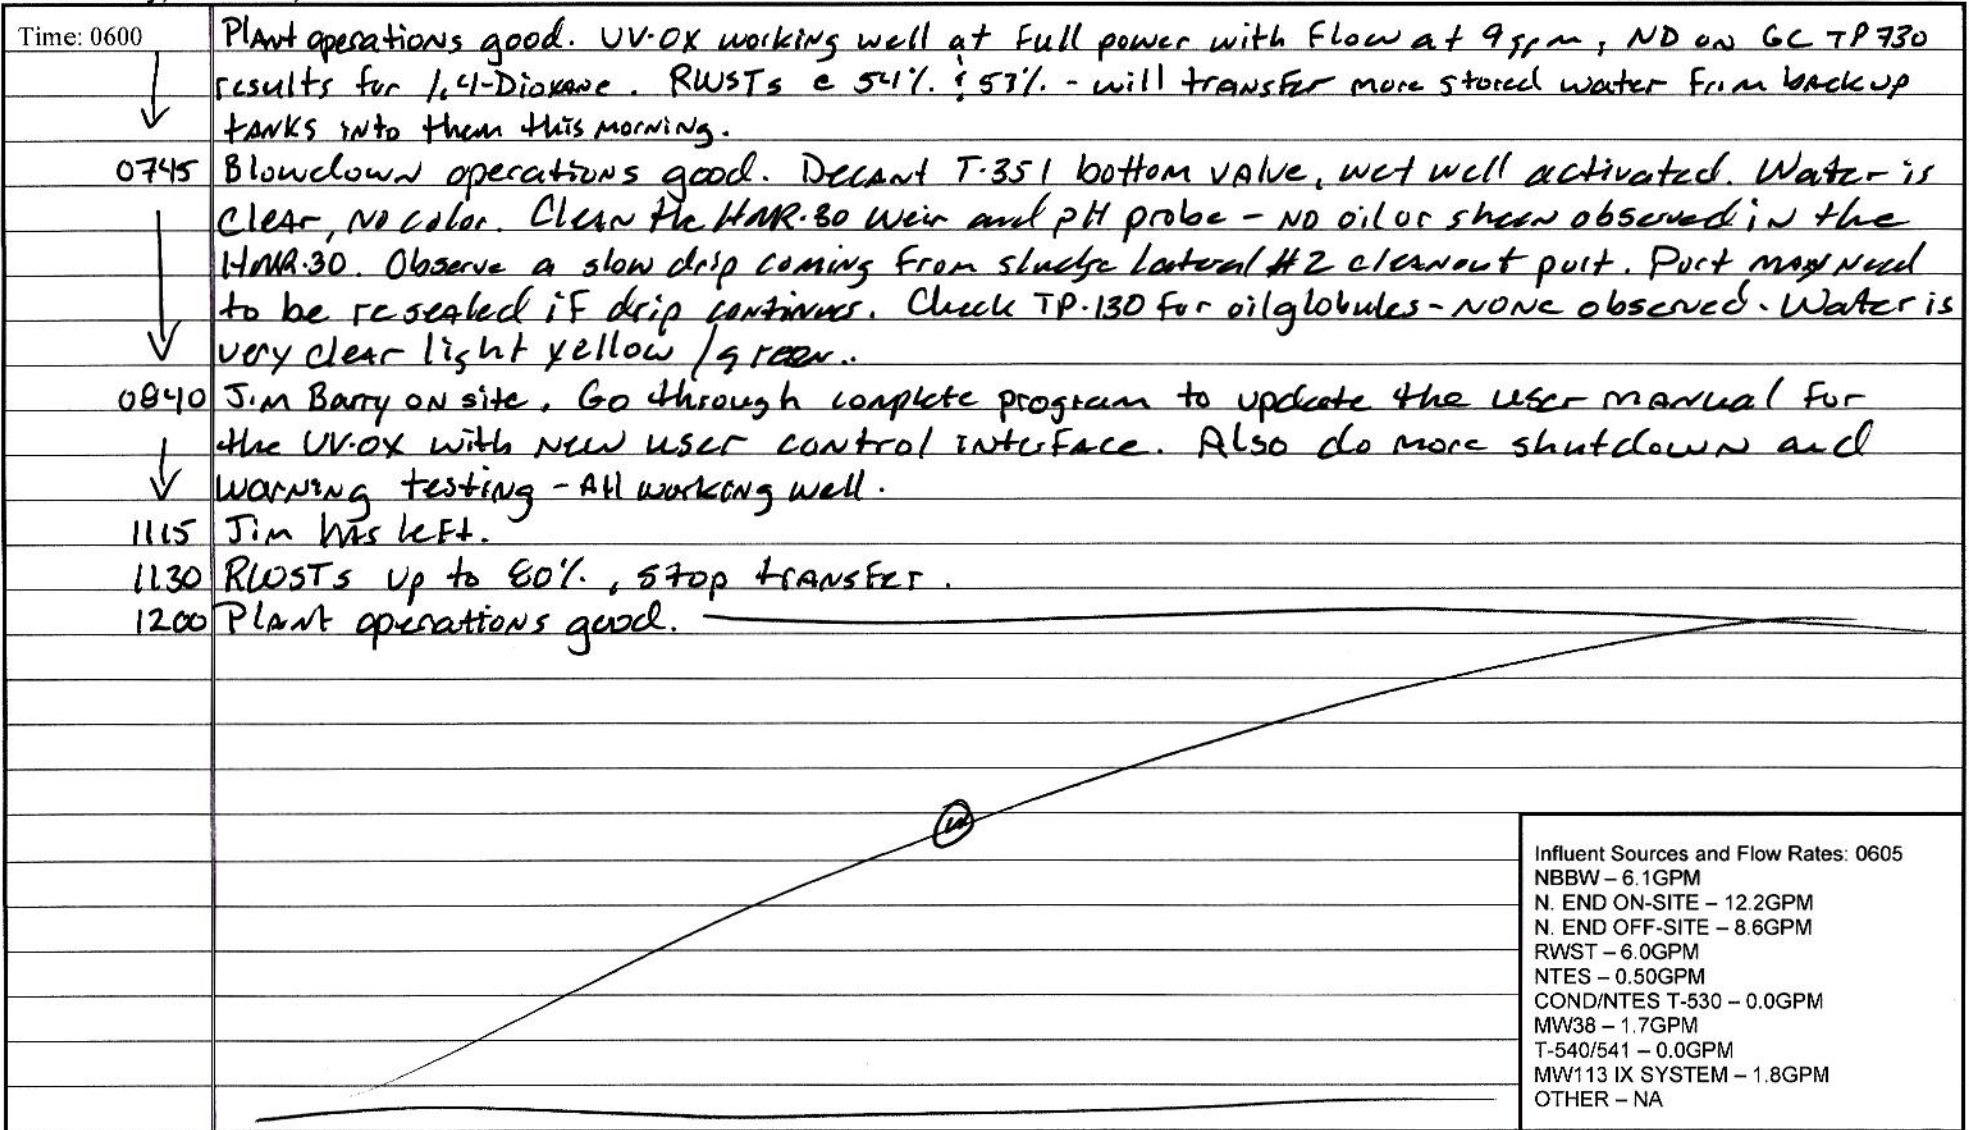 Time: 0600 Plant operations good. UV-OX working well at full power with flow at 9gpm, ND on GC TP730
results for 1,4-Dioxane. RWSTs @ 54% & 53% - will transfer more stored water from backup
tanks into them this morning.
0745 Blowdown operations good. Decant T-351 bottom valve, wet well activated. Water is
clear, no color. Clean the HMR-30 weir and pH probe - no oil or sheen observed in the
HMR-30. Observe a slow drip coming from sludge lateral #2 cleanout port. Port may need
to be resealed if drip continues. Check TP-130 for oil globules - none observed. Water is
very clear light yellow/green.
0840 Jim Barry on site. Go through complete program to update the user manual for
the UV-OX with new user control interface. Also do more shutdown and
warning testing - All working well.
1115 Jim has left.
1130 RWSTs up to 80%, stop transfer.
1200 Plant operations good.
Influent Sources and Flow Rates: 0605
NBBW – 6.1GPM
N. END ON-SITE – 12.2GPM
N. END OFF-SITE – 8.6GPM
RWST – 6.0GPM
NTES – 0.50GPM
COND/NTES T-530 – 0.0GPM
MW38 – 1.7GPM
T-540/541 – 0.0GPM
MW113 IX SYSTEM – 1.8GPM
OTHER – NA